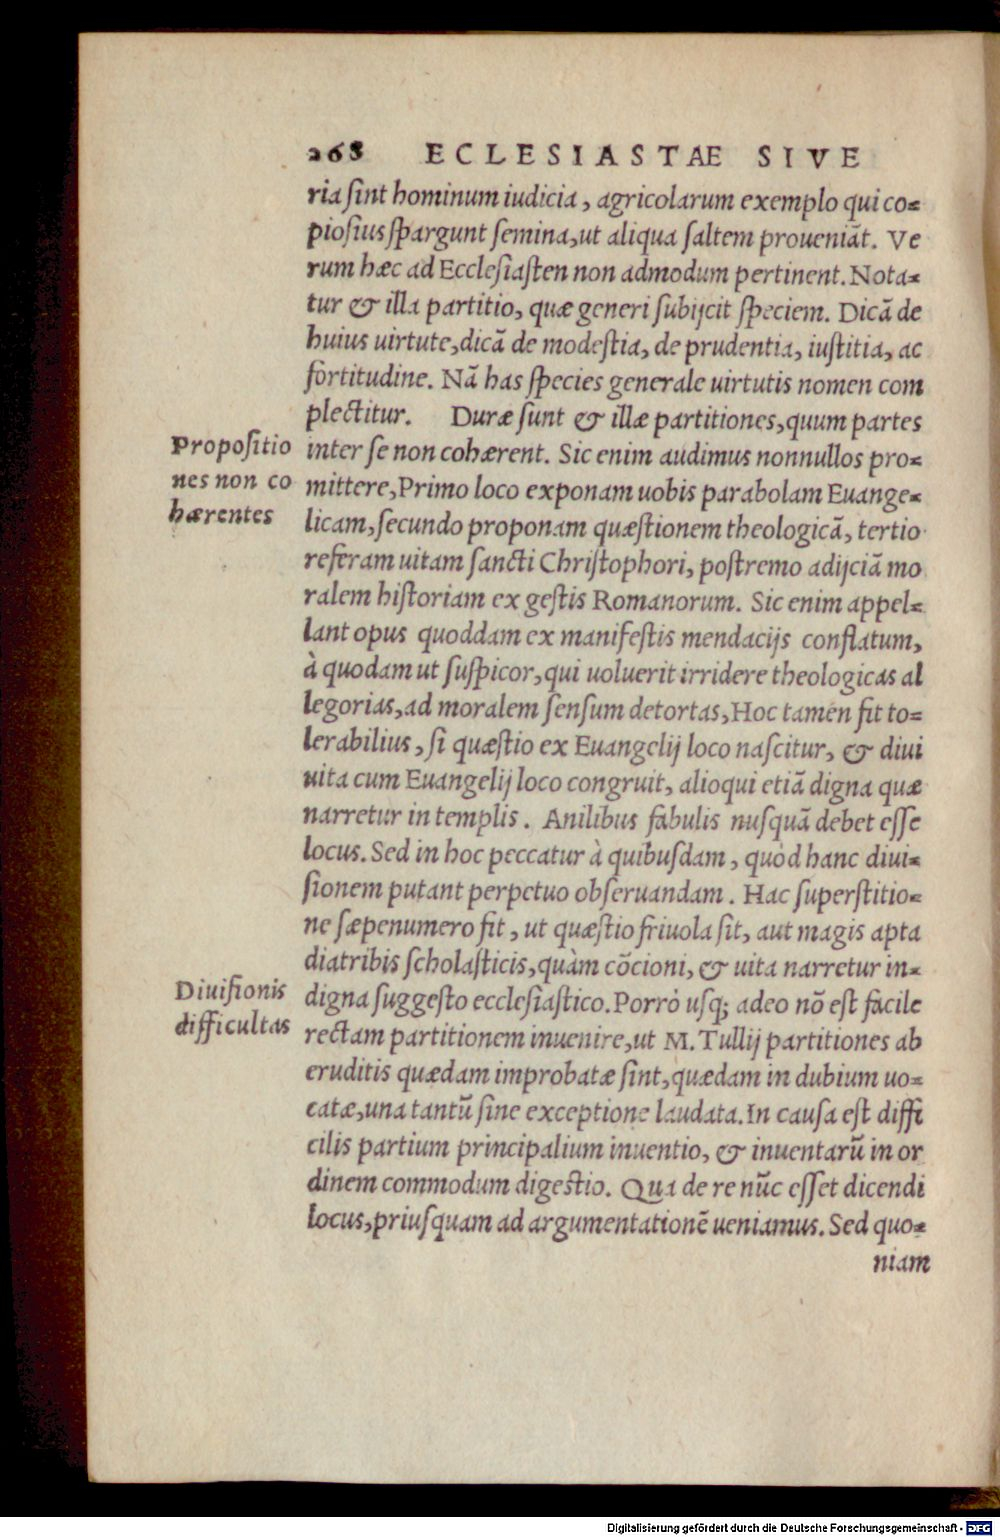 268 ECLESIASTAE SIVE
ria sint hominum iudicia, agricolarum exemplo qui co=
piosius spargunt semina, ut aliqua saltem proueniāt. Ve
rum hæc ad Ecclesiasten non admodum pertinent. Nota=
tur & illa partitio, quæ generi subijcit speciem. Dicā de
huius uirtute, dicā de modestia, de prudentia, iustitia, ac
fortitudine. Nā has species generale uirtutis nomen com
plectitur. Duræ sunt & illæ partitiones, quum partes
Propositio
nes non co
hærentes
inter se non cohærent. Sic enim audimus nonnullos pro=
mittere, Primo loco exponam uobis parabolam Euange=
licam, secundo proponam quæstionem theologicā, tertio
referam uitam sancti Christophori, postremo adijciā mo
ralem historiam ex gestis Romanorum. Sic enim appel=
lant opus quoddam ex manifestis mendacijs conflatum,
à quodam ut suspicor, qui uoluerit irridere theologicas al
legorias, ad moralem sensum detortas, Hoc tamen fit to=
lerabilius, si quæstio ex Euangelij loco nascitur, & diui
uita cum Euangelij loco congruit, alioqui etiā digna quæ
narretur in templis. Anilibus fabulis nusquā debet esse
locus. Sed in hoc peccatur à quibusdam, quòd hanc diui=
sionem putant perpetuo obseruandam. Hac superstitio=
ne sæpenumero fit, ut quæstio friuola sit, aut magis apta
diatribis scholasticis, quàm cōcioni, & uita narretur in=
Diuisionis
difficultas
digna suggesto ecclesiastico. Porrò usq; adeo nō est facile
rectam partitionem inuenire, ut M. Tullij partitiones ab
eruditis quædam improbatæ sint, quædam in dubium uo=
catæ, una tantū sine exceptione laudata. In causa est diffi
cilis partium principalium inuentio, & inuentarū in or
dinem commodum digestio. Qua de re nūc esset dicendi
locus, priusquam ad argumentationē ueniamus. Sed quo=
niam
Digitalisierung gefördert durch die Deutsche Forschungsgemeinschaft - DFG